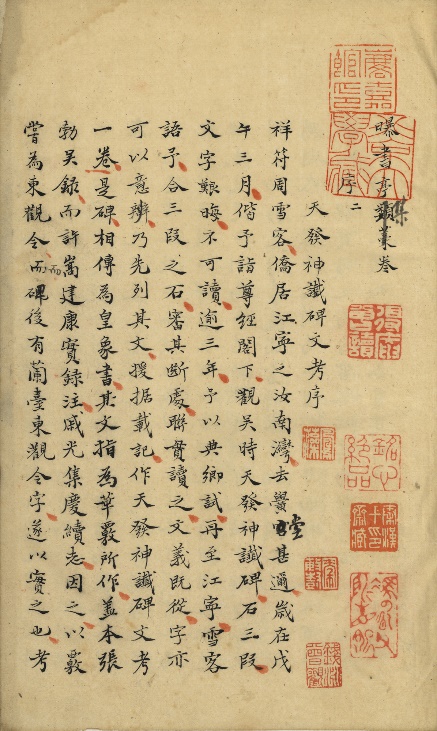 曝書亭集藁卷
序二
天發神讖碑文考序
祥符周雪客僑居江寧之汝南灣去黌堂甚邇歲在戊
午三月偕予詣尊經閣下觀吳時天發神讖碑石三段
文字艱晦不可讀逾三年予以典鄉試再至江寧雪客
語予合三段之石審其斷處聯貫讀之文義既從字亦
可以意辨乃先列其文援据載記作天發神讖碑文考
一卷是碑相傳為皇象書其文指為華覈所作蓋本張
勃吳録而許嵩建康實録注戚光集慶續志因之以覈
嘗為東觀令而碑後有蘭臺東觀令字遂以實之也考